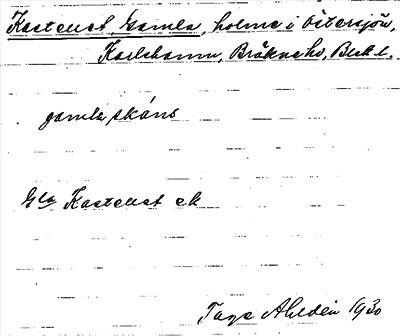 Kastellet, Gamla, holme i Östersjön,
Karlshamn, Bräkneho, Blek l.
gamla skáns
Gla Kastellet ek
Tage Ahldén 1930